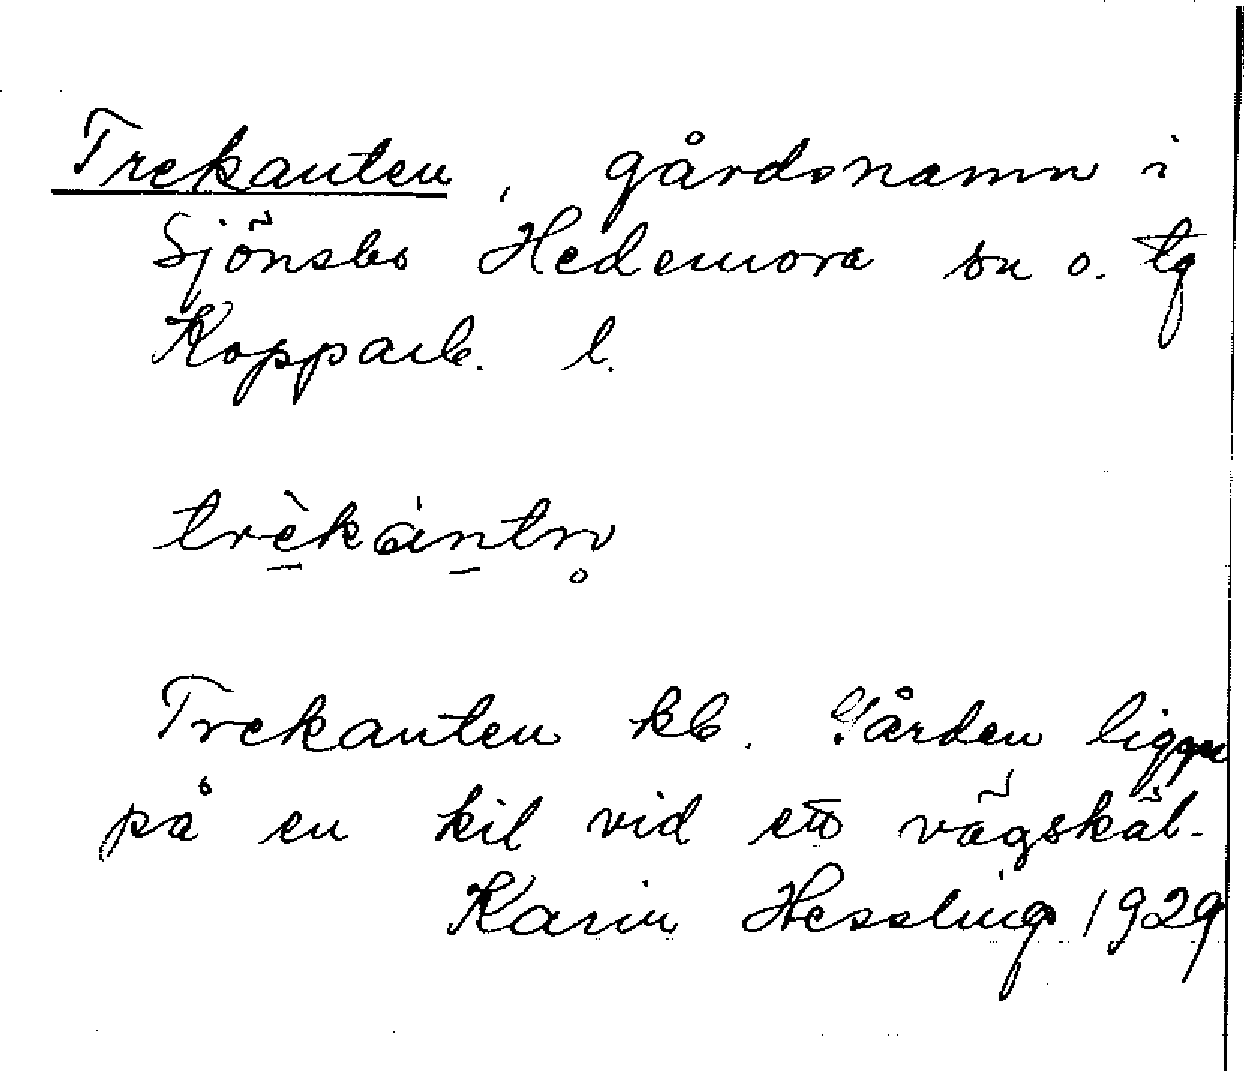 Trekanten, gårdsnamn i
Sjönsbo Hedemora sn o. tg
Kopparb. l.
trè̱káṉtn̥
Trekanten kb. Gården ligger
på en kil vid ett vägskäl.
Karin Hessling 1929